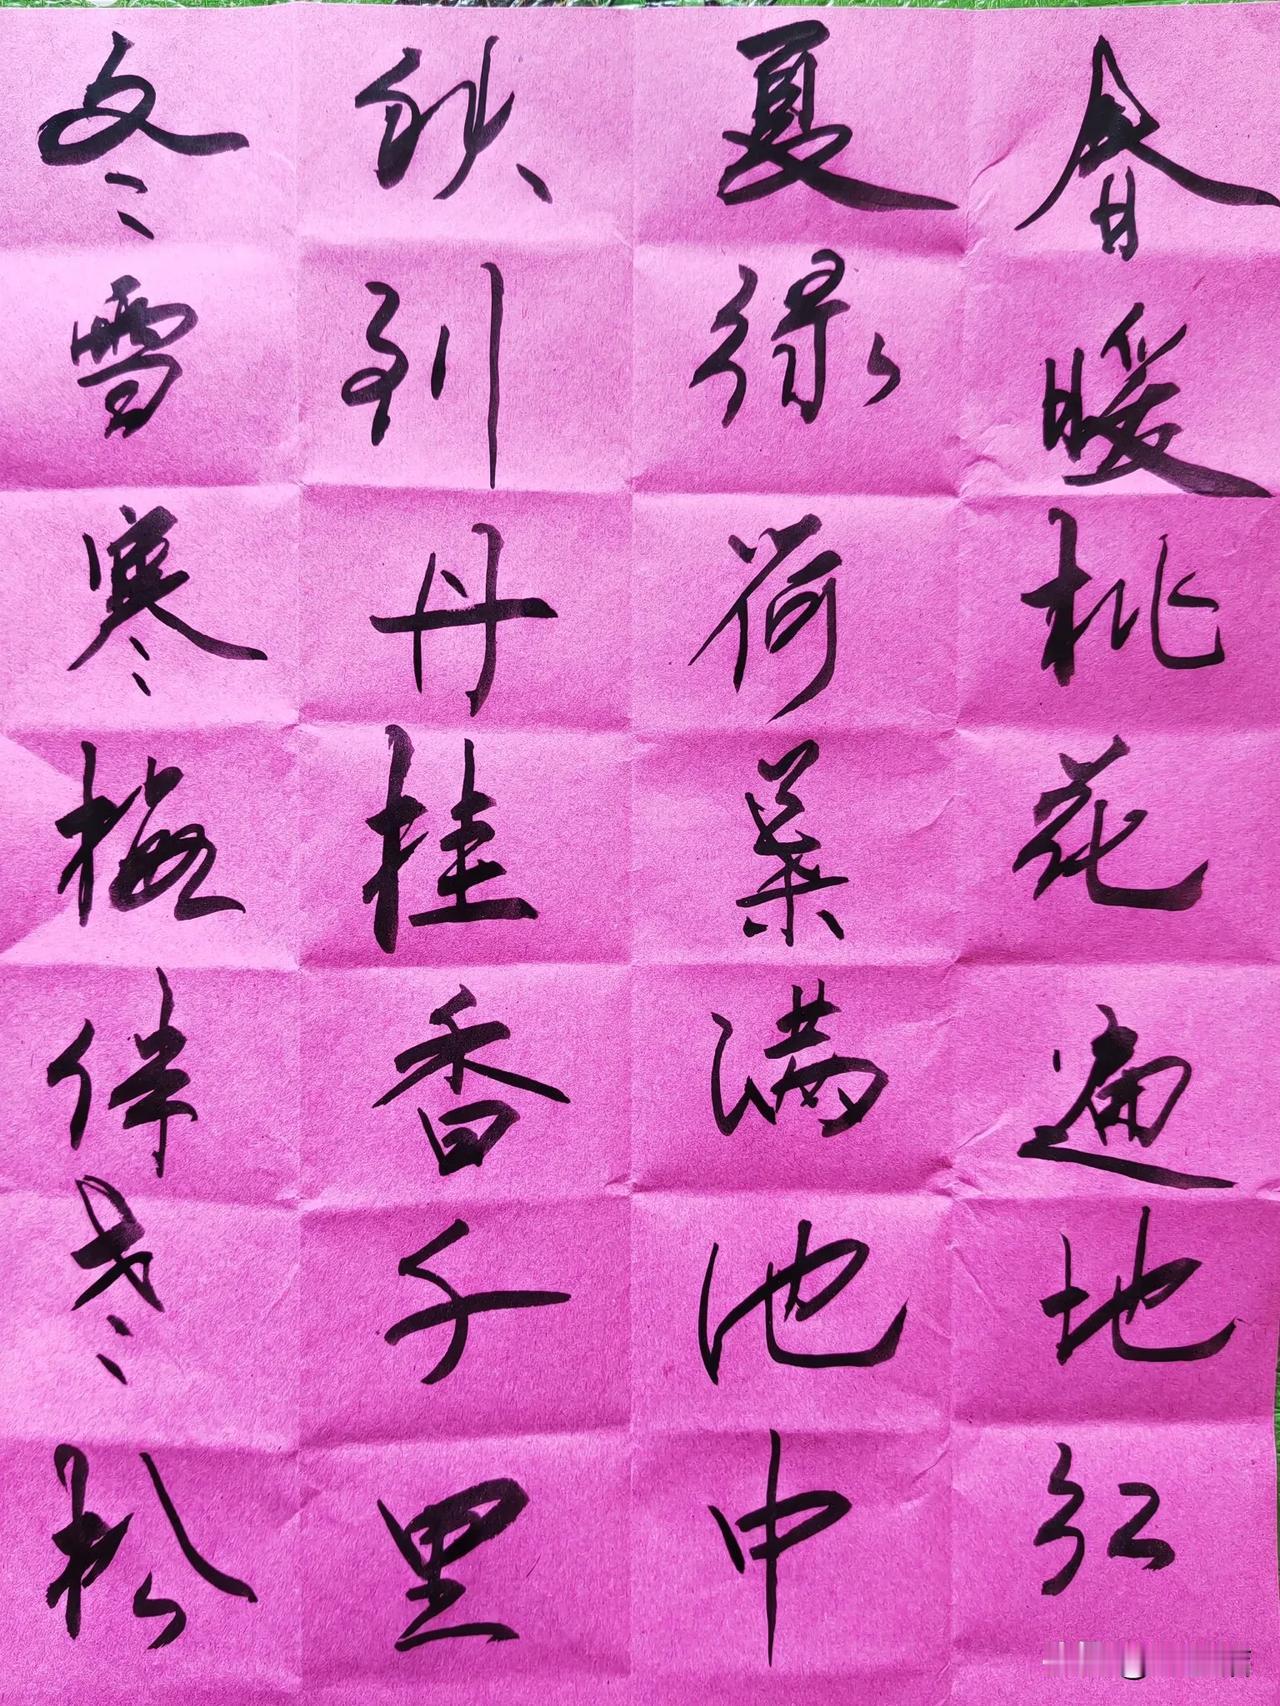 春暖桃花遍地红
夏绿荷葉满池中
秋到丹桂香千里
冬雪寒梅伴松